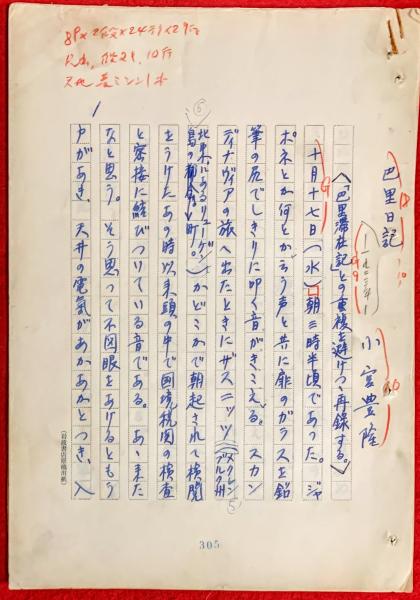 8P×2段×24行×29行
天地ミシン1本
1
巴里日記
―一九二三年―
小宮豊隆
〈「巴里滞在記」との重複を避けつゝ再録する。〉
十月十七日(水) 朝三時半頃であった。ジャ
ポネとか何とか云う声と共に扉のガラスを鉛
筆の尻でしきりに叩く音がきこえる。スカン
ディナヴィアの旅へ出たときにザスニッツ(メクレン
ブルク州
北東にあるリューゲン
島の町。)かどこかで朝起されて検閲
をうけたあの時以来頭の中で国境税関の検査
と密接に結びつけている音である。あゝまた
だなと思う。そう思って不図眼をあげるともう
戸があき、天井の電気があかあかとつき、入
(岩波書店原稿用紙)
305